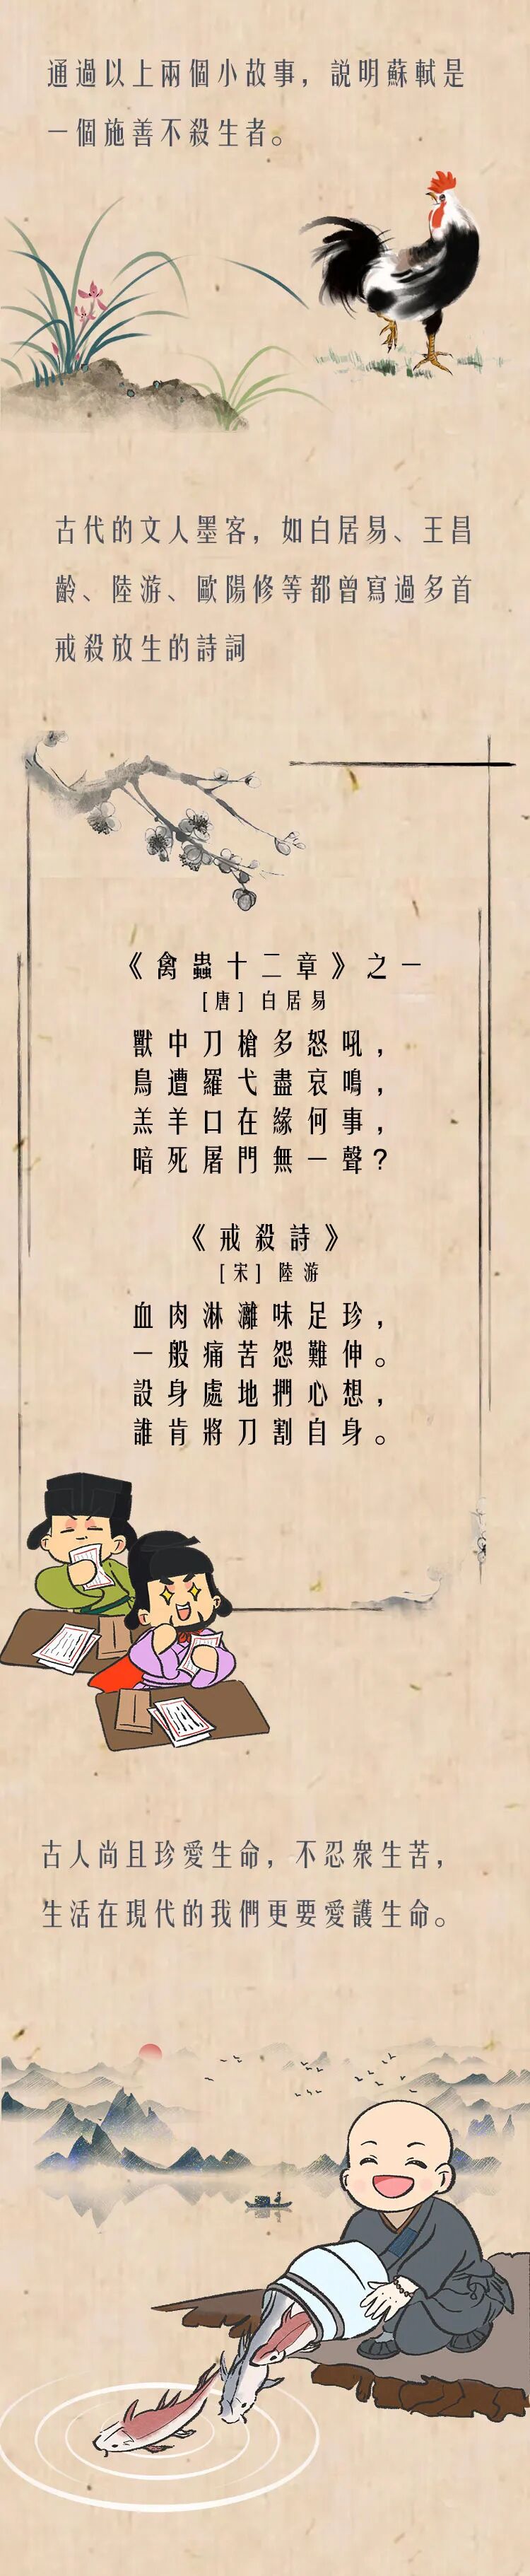 通過以上兩個小故事，説明蘇軾是
一個施善不殺生者。
古代的文人墨客，如白居易、王昌
齡、陸游、歐陽修等都曾寫過多首
戒殺放生的詩詞
《禽蟲十二章》之一
[唐] 白居易
獸中刀槍多怒吼，
鳥遭羅弋盡哀鳴，
羔羊口在緣何事，
暗死屠門無一聲？
《戒殺詩》
[宋] 陸游
血肉淋灕味足珍，
一般痛苦怨難伸。
設身處地捫心想，
誰肯將刀割自身。
古人尚且珍愛生命，不忍衆生苦，
生活在現代的我們更要愛護生命。